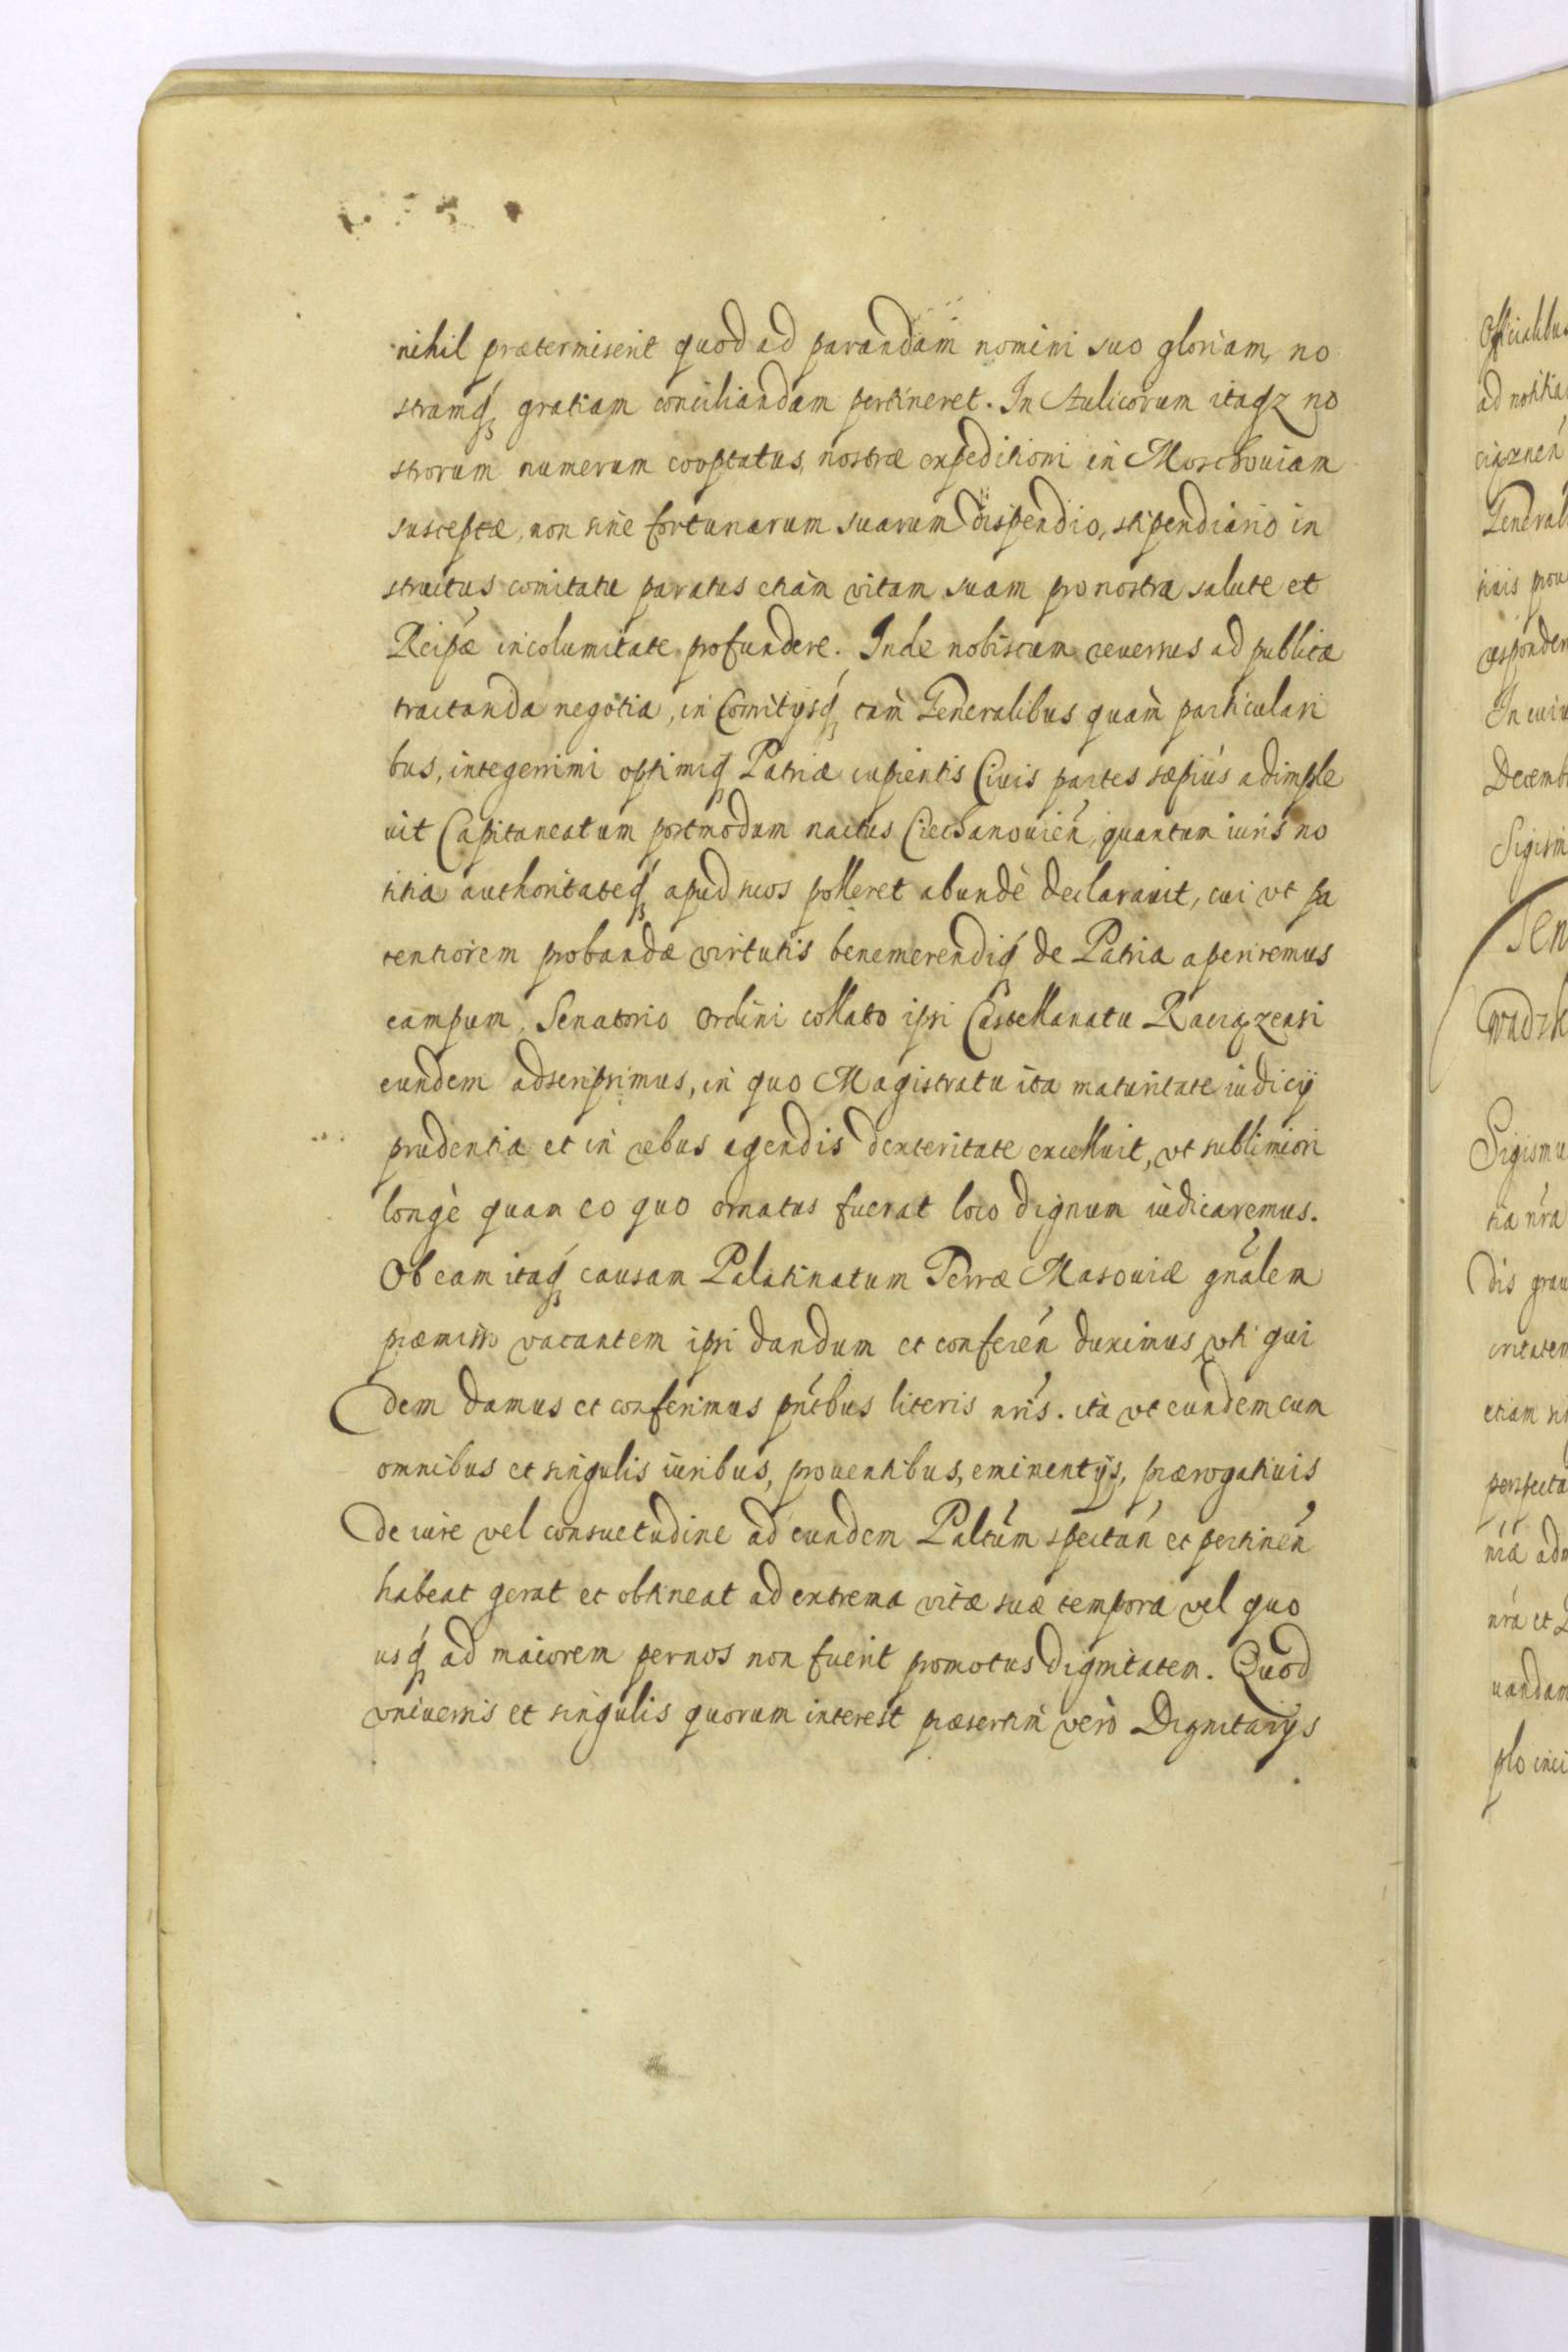 nihil prætermiserit quod ad parandam nomini suo gloriam, no
stramq́ꝫ gratiam conciliandam pertineret. In Aulicorum itaqz no
strorum numerum cooptatus, nostræ expeditioni in Moschouiam
susceptæ, non sine fortunarum suarum dispendio, stipendiario in
structus comitatu paratus etiam vitam suam pro nostra salute et
Reipæ incolumitate profundere. Inde nobiscum reuersus ad publica
tractanda negotia, in Comitijsq́ꝫ tam Generalibus quam particulari
bus, integerrimi optimiq́ꝫ Patriæ cupientis Ciuis partes sæpius adimple
uit Capitaneatum postmodum nactus Ciechanouień, quantum iuris no
titia authoritateq́ꝫ apud suos polleret abundè declarauit, cui vt pa
tentiorem probandæ virtutis benemerendiq́ꝫ de Patria aperiremus
campum, Senatorio Ordini collato ipsi Castellanatu Raciązensi
eundem adscripsimus, in quo Magistratu ita maturitate iudicij
prudentia et in rebus agendis dexteritate excelluit, vt sublimiori
longè quam eo quo ornatus fuerat loco dignum iudicaremus.
Ob eam itaq́ꝫ causam Palatinatum Terræ Masouiæ gńalem
præmisso vacantem ipsi dandum et confereń duximus vti qui
dem damus et conferimus pńtibus literis nŕis. ita vt eundem cum
omnibus et singulis iuribus, prouentibus, eminentijs, prærogatiuis
de iure vel consuetudine ad eundem Paltúm spectań et pertineń
habeat gerat et obtineat ad extrema vitæ suæ tempora vel quo
usq́ꝫ ad maiorem per nos non fuerit promotus dignitatem. Quod
vniuersis et singulis quorum interest præsertim verò Dignitarijs
Officialibus
ad notitia
Generali
In cuiu
Decemb
Sigism
Sigismu
tia nŕa
dis grau
etiam
perfecta
nŕa et
uandam
plo inci